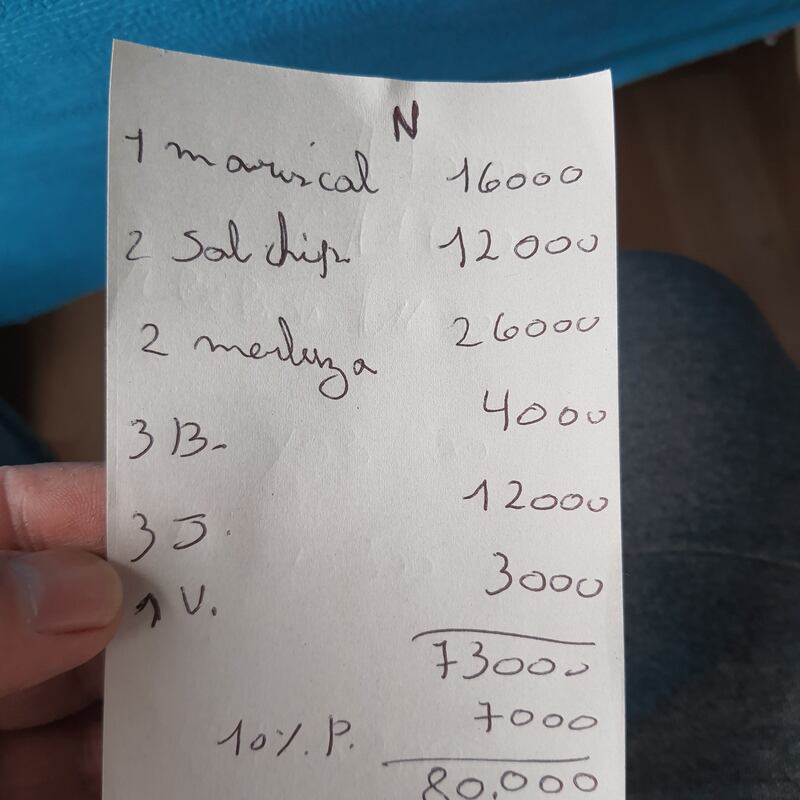 N
1 mariscal 16000
2 Salchip. 12000
2 merluza 26000
3 B. 4000
3 J. 12000
1 V. 3000
73000
10%. P. 7000
80.000